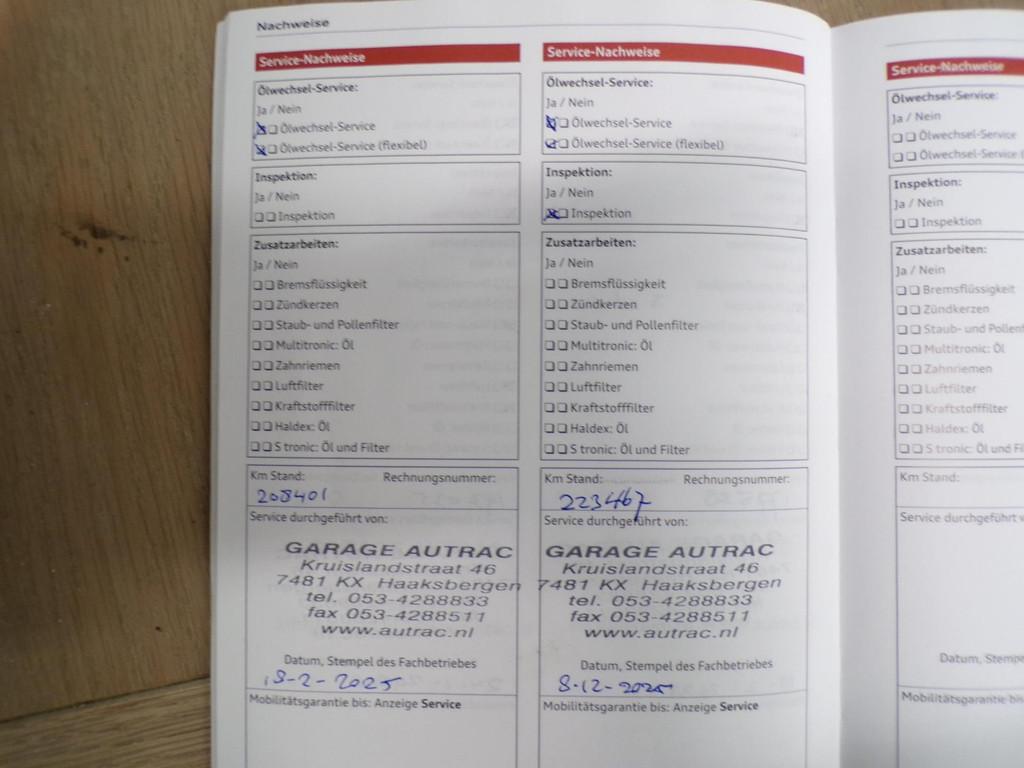 Nachweise
Service-Nachweise
Ölwechsel-Service:
Ja / Nein
Ölwechsel-Service
Ölwechsel-Service (flexibel)
Inspektion:
Ja / Nein
Inspektion
Zusatzarbeiten:
Ja / Nein
Bremsflüssigkeit
Zündkerzen
Staub- und Pollenfilter
Multitronic: Öl
Zahnriemen
Luftfilter
Kraftstofffilter
Haldex: Öl
S tronic: Öl und Filter
Km Stand: Rechnungsnummer:
208401
Service durchgeführt von:
GARAGE AUTRAC
Kruislandstraat 46
7481 KX Haaksbergen
tel. 053-4288833
fax 053-4288511
www.autrac.nl
Datum, Stempel des Fachbetriebes
18-2-2025
Mobilitätsgarantie bis: Anzeige Service
Service-Nachweise
Ölwechsel-Service:
Ja / Nein
Ölwechsel-Service
Ölwechsel-Service (flexibel)
Inspektion:
Ja / Nein
Inspektion
Zusatzarbeiten:
Ja / Nein
Bremsflüssigkeit
Zündkerzen
Staub- und Pollenfilter
Multitronic: Öl
Zahnriemen
Luftfilter
Kraftstofffilter
Haldex: Öl
S tronic: Öl und Filter
Km Stand: Rechnungsnummer:
223467
Service durchgeführt von:
GARAGE AUTRAC
Kruislandstraat 46
7481 KX Haaksbergen
tel. 053-4288833
fax 053-4288511
www.autrac.nl
Datum, Stempel des Fachbetriebes
8-12-2025
Mobilitätsgarantie bis: Anzeige Service
Service-Nachweise
Ölwechsel-Service:
Ja / Nein
Ölwechsel-Service
Ölwechsel-Service
Inspektion:
Ja / Nein
Inspektion
Zusatzarbeiten:
Ja / Nein
Bremsflüssigkeit
Zündkerzen
Staub- und Pollenf
Multitronic: Öl
Zahnriemen
Luftfilter
Kraftstofffilter
Haldex: Öl
S tronic: Öl und
Km Stand:
Service durchgeführt
Datum, Stempe
Mobilitätsgarantie bis